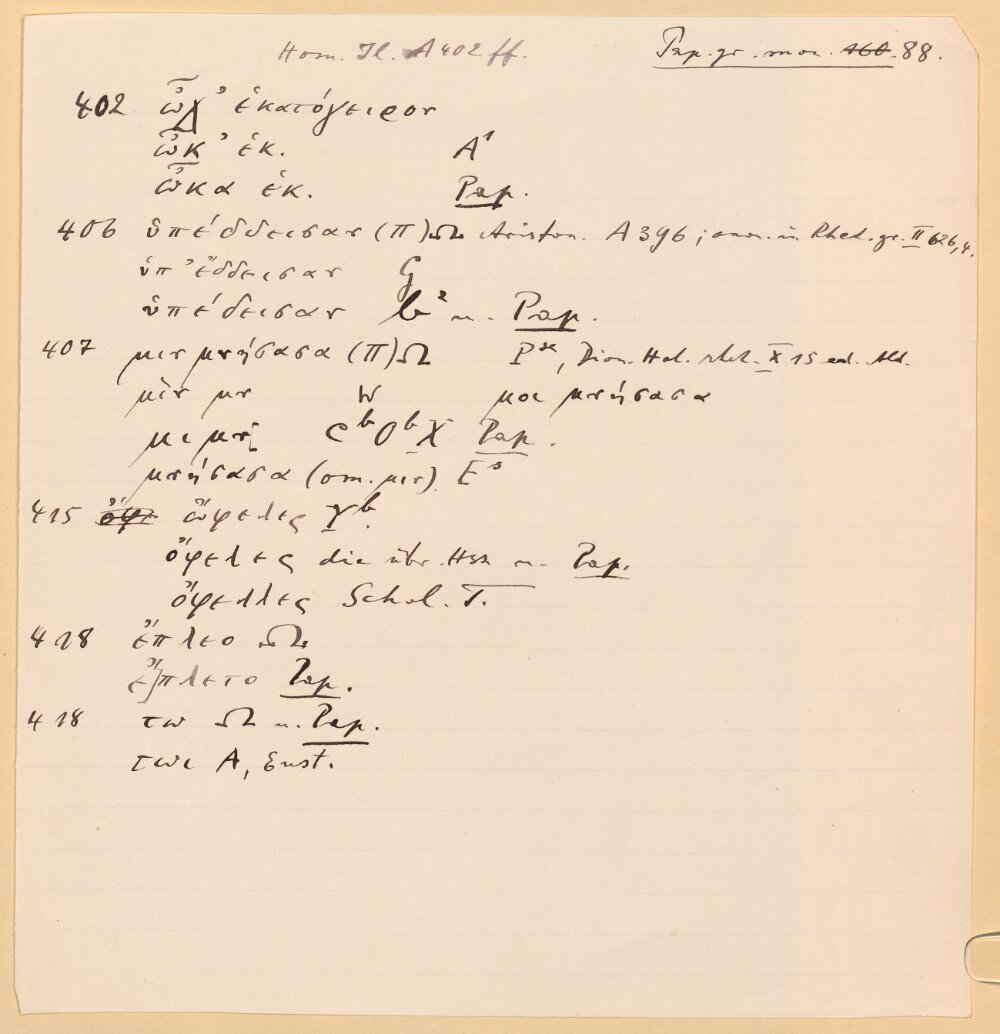 Hom. Il. A 402 ff.
Pap. gr. mon. 160. 88.
402 ὦχ' ἑκατόγχειρον
ὦκ' ἑκ. A¹
ὦκα ἑκ. Pap.
406 ὑπέδδεισαν (Π)Ω Ariston. A 396; anon. in Rhet. gr. II 626,4.
ὑπ' ἔδδεισαν G
ὑπέδεισαν b² u. Pap.
407 μιν μνήσασα (Π)Ω Pˣ, Dion. Hal. rhet. X 15 ed. Ald.
μὶν μν W μοι μνήσασα
μι μνη Cᵇ Oᵇ X Pap.
μνήσασα (om. μιν) E³
415 ὄφε ὤφελες γᵇ.
ὄφελες die übr. Hss u. Pap.
ὄφελλες Schol. T.
418 ἔπλεο Ω
ἔ]πλετο Pap.
418 τω Ω u. Pap.
τωι A, Eust.